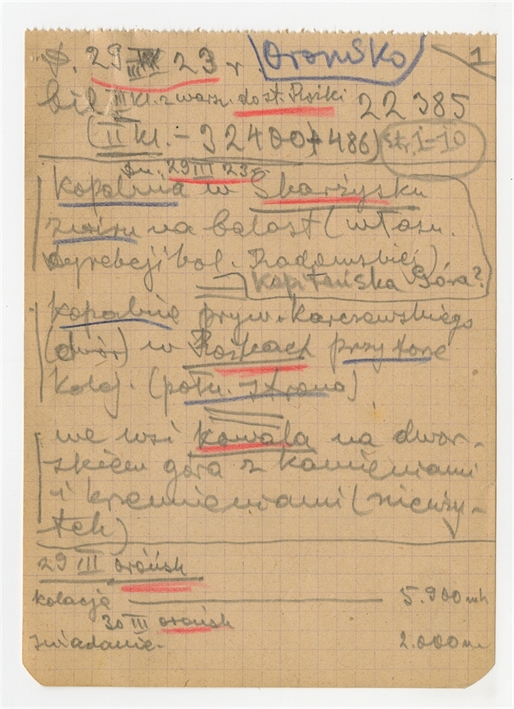 D. 29 III 23 r. Orońsko 1
bil III kl. z warsz. do st. Ruski 22 385
(II kl. - 32400 + 486) str. 1-10
Dn. 29 III 23
kopalnia w Skarżysku
żwiru na balast (własn.
dyrekcji kol. Radomskiej).
Kapitańska Góra?
kopalnię pryw. Karczewskiego
(dwór) w Rożkach przy torze
kolej. (połn. strona)
we wsi Kowala na dwor-
skiem góra z kamieniami
i krzemieniami (nieuży-
tek)
29 III Orońsk
kolacja 5.900 mk
30 III Orońsk
śniadanie. 2.000 m